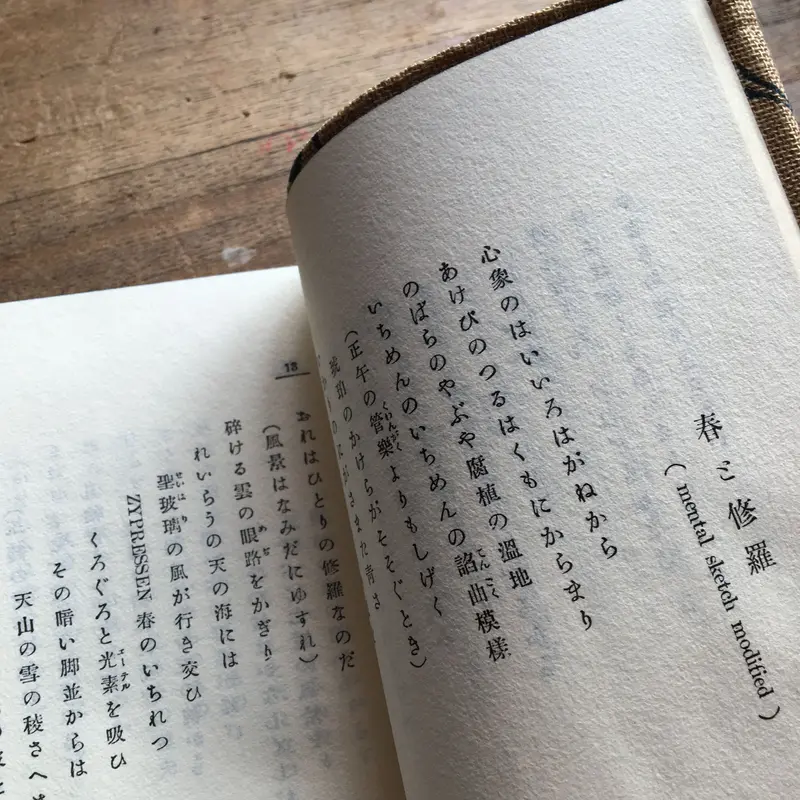 春と修羅
(mental sketch modified)
心象のはいいろはがねから
あけびのつるはくもにからまり
のばらのやぶや腐植の濕地
てんごく
いちめんのいちめんの諂曲模樣
くわんがく
(正午の管樂よりもしげく
琥珀のかけらがそそぐとき)
にがさまた青さ
18
おれはひとりの修羅なのだ
(風景はなみだにゆすれ)
めぢ
碎ける雲の眼路をかぎり
れいらうの天の海には
せいはり
聖玻璃の風が行き交ひ
ZYPRESSEN 春のいちれつ
エーテル
くろぐろと光素を吸ひ
その暗い脚並からは
天山の雪の稜さへ